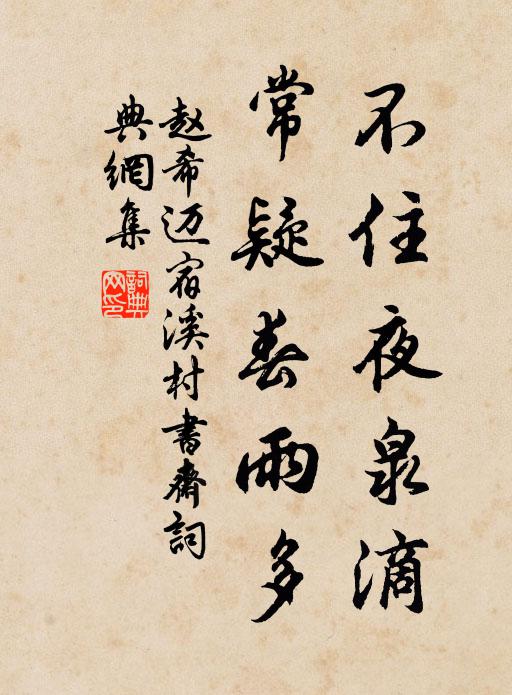 不住夜泉滴
常疑春雨多
赵希迈宿溪村書齋詞
典網集
詞典网印